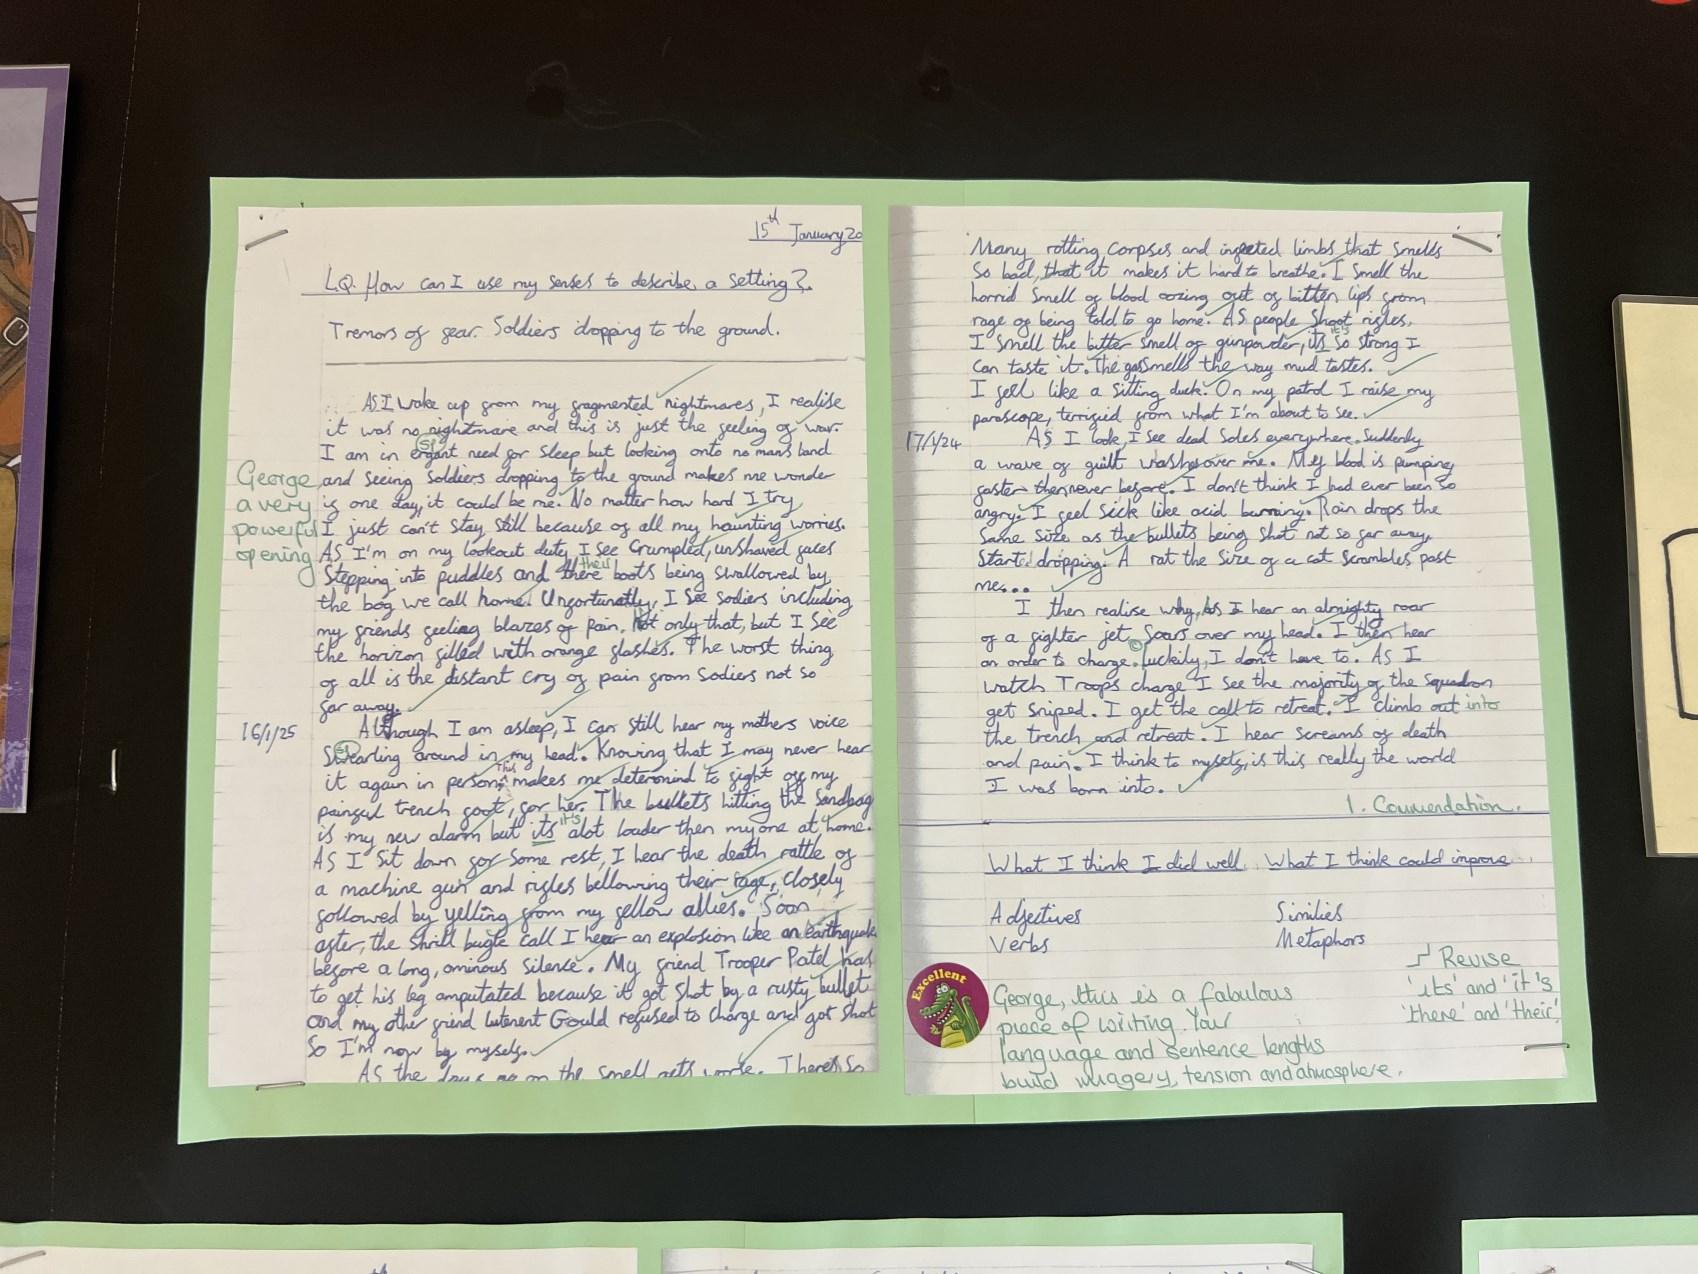 15th January 20
LQ. How can I use my senses to describe a setting?.
Tremors of fear. Soldiers dropping to the ground.
As I wake up from my fragmented nightmares, I realise
it was no nightmare and this is just the feeling of war.
I am in ergant need for sleep but looking onto no mans land
and seeing soldiers dropping to the ground makes me wonder
if one day, it could be me. No matter how hard I try
I just can't stay still because of all my haunting worries.
As I'm on my lookout duty, I see crumpled, unshaved faces
their
Stepping into puddles and there boots being swallowed by
the bog we call home. Unfortunatly, I see sodiers including
my friends feeling blazes of pain. Not only that, but I see
the horizon filled with orange flashes. The worst thing
of all is the distant cry of pain from sodiers not so
far away.
George
a very
powerful
opening
16/1/25
Although I am asleep, I can still hear my mothers voice
around in my head. Knowing that I may never hear
This
it again in person, makes me determind to fight off my
painful trench foot, for her. The bullets hitting the sandbag
it's
is my new alarm but its alot louder then my one at home.
As I sit down for some rest, I hear the death rattle of
a machine gun and rifles bellowing their rage, closely
followed by yelling from my fellow allies. Soon
after, the shrill bugle call I hear an explosion like an earthquake
before a long, ominous silence. My friend Trooper Patel has
to get his leg amputated because it got shot by a rusty bullet
and my other friend lutenent Gould refused to charge and got shot
So I'm now by myself.
As the days go on the smell gets worse. There's so
Many rotting corpses and infected limbs that smells
So bad, that it makes it hard to breathe. I smell the
horrid smell of blood oozing out of bitten lips from
rage of being told to go home. As people shoot rifles,
it's
I smell the bitter smell of gunpowder, its so strong I
can taste it. The gas smells the way mud tastes.
I feel like a sitting duck. On my patrol I raise my
parascope, terrified from what I'm about to see.
17/1/24
As I look, I see dead soles everywhere. Suddenly
a wave of guilt washes over me. My blood is pumping
faster then never before. I don't think I had ever been so
angry. I feel sick like acid burning. Rain drops the
Same size as the bullets being shot not so far away,
Start dropping. A rat the size of a cat scrambles past
me...
I then realise why, As I hear an almighty roar
of a fighter jet soars over my head. I then hear
an order to charge. Luckily, I don't have to. As I
watch Troops charge I see the majority of the squadron
get sniped. I get the call to retreat. I climb out into
the trench and retreat. I hear screams of death
and pain. I think to myself, is this really the world
I was born into.
1. Commendation.
What I think I did well What I think could improve
Adjectives Similies
Verbs Metaphors
Excellent
George, this is a fabulous
piece of writing. Your
language and sentence lengths
build imagery, tension and atmosphere.
Revise
'its' and 'it's
'there' and 'their'